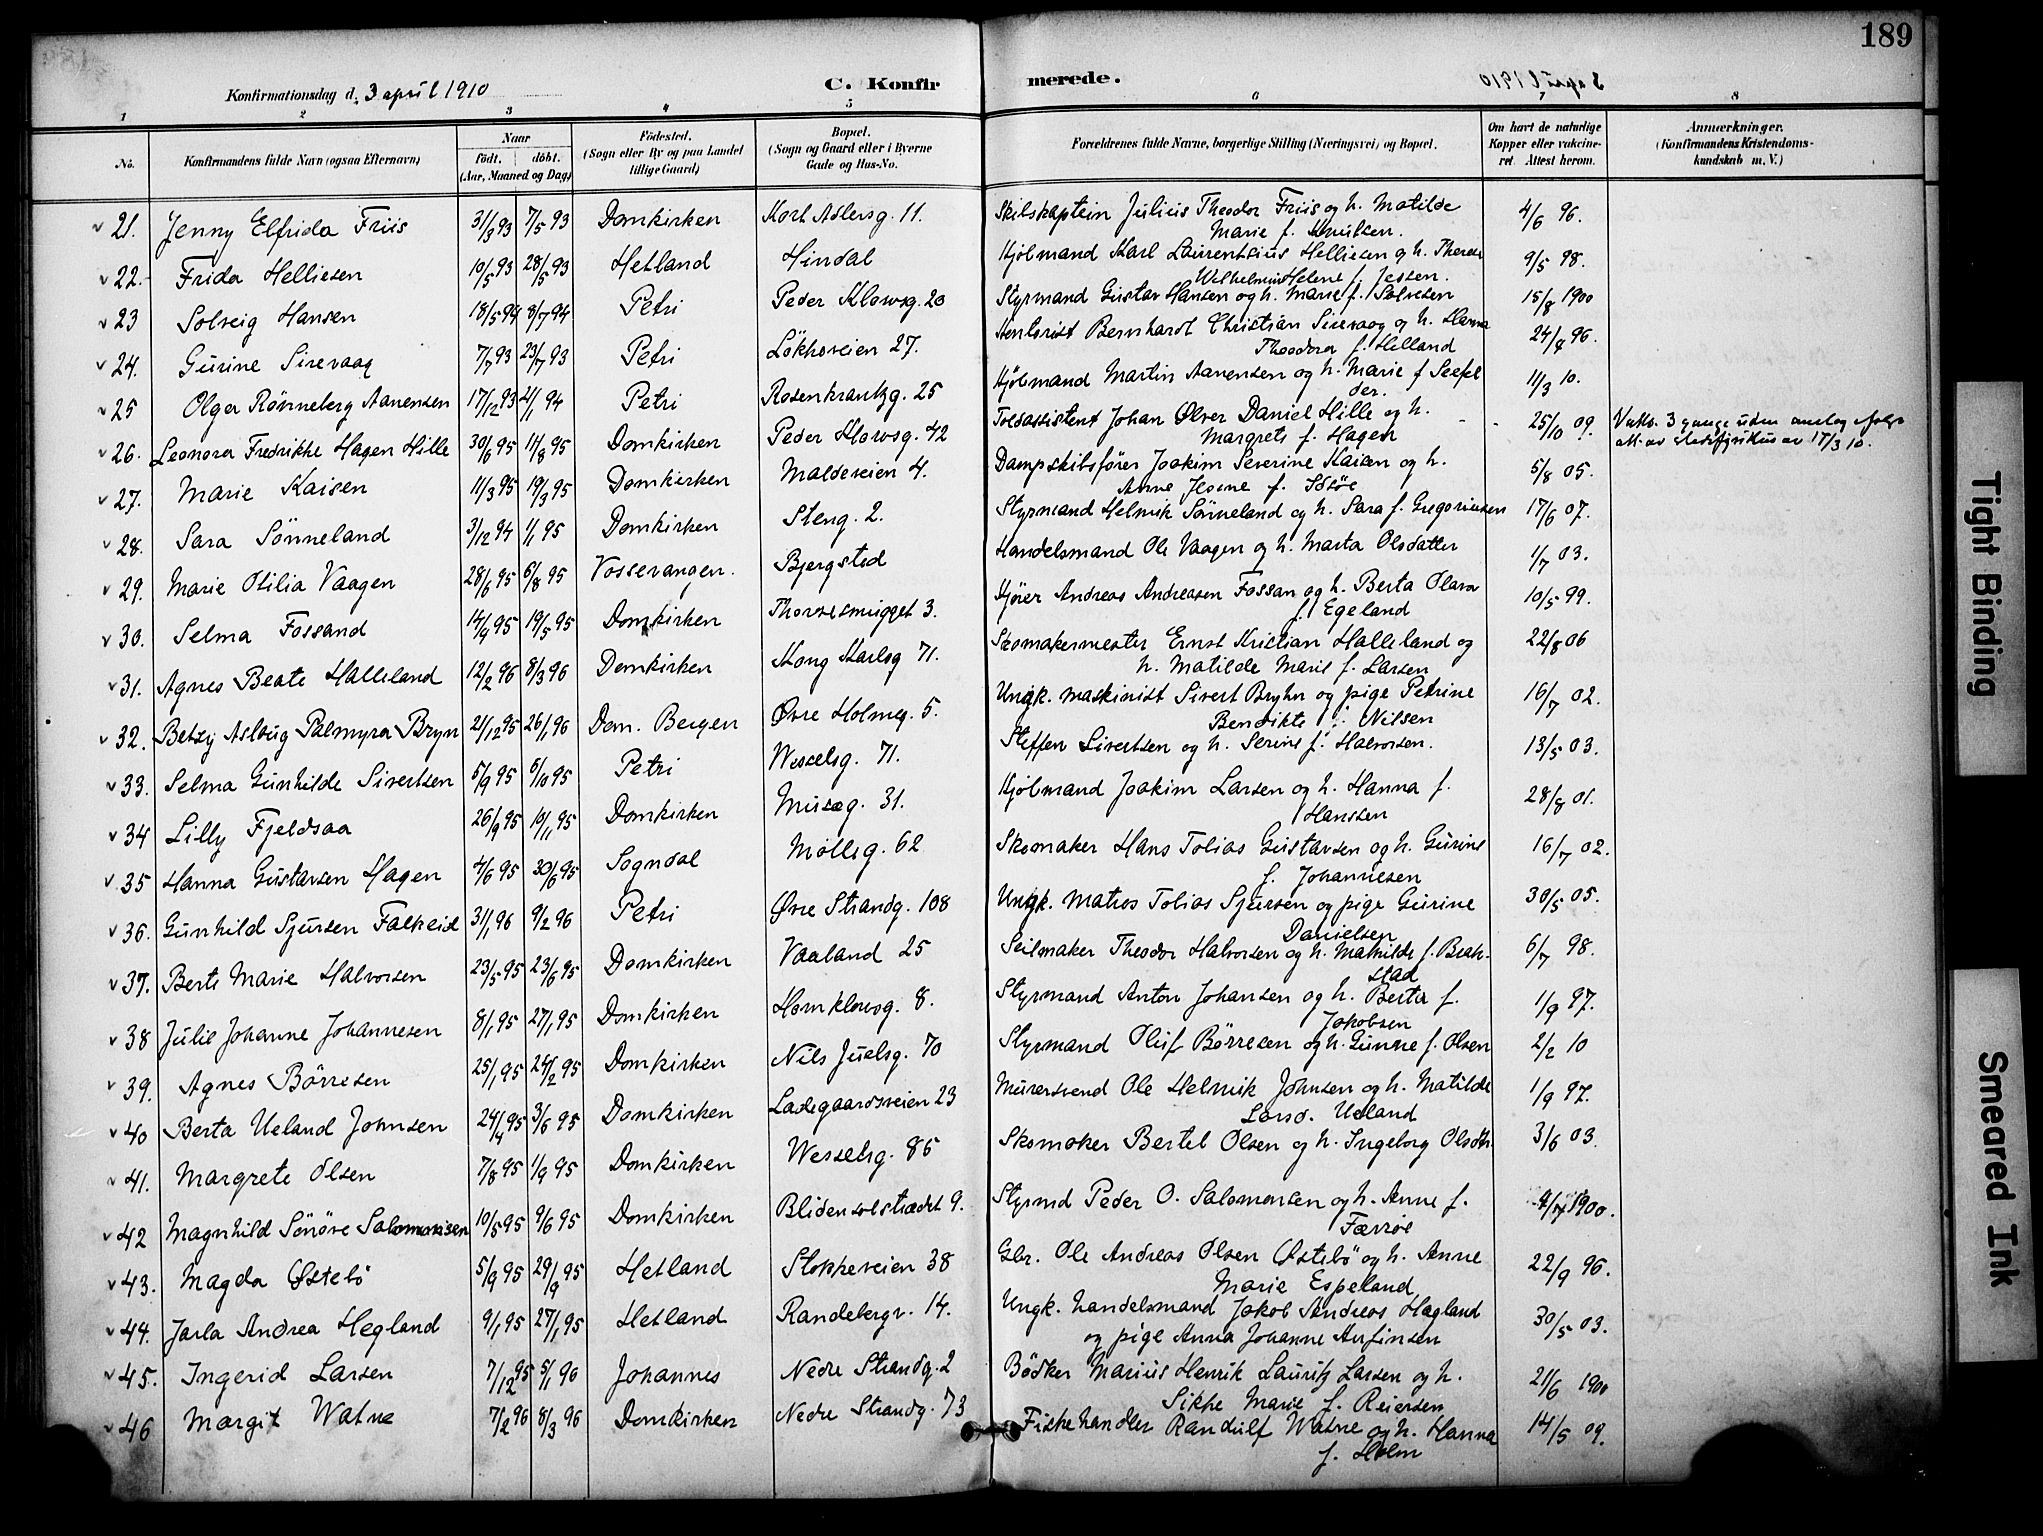 189
Konfirmationsdag d. 3 april 1910
C. Konfir merede.
1 2 3 4 5 6 7 8
No. Konfirmandens fulde Navn (ogsaa Efternavn) Naar födt. döbt. (Aar, Maaned og Dag) Födested. (Sogn eller By og paa Landet tillige Gaard) Bopæl. (Sogn og Gaard eller i Byerne Gade og Hus-No. Forældrenes fulde Navne, borgerlige Stilling (Næringsvei) og Bopæl. Om havt de naturlige Kopper eller vakcineret. Attest herom. Anmærkninger. (Konfirmandens Kristendomskundskab m. V.)
21. Jenny Elfrida Friis 31/3 93 7/5 93 Domkirken Kort Adlersg. 11. Skibskaptein Julius Theodor Friis og h. Matilde 4/6 96.
Marie f. Knutsen.
22. Frida Helliesen 10/5 93 28/5 93 Hetland Hindal Kjøbmand Karl Laurentsius Helliesen og h. Therese 9/5 98.
Wilhelmine Helene f. Jessen.
23 Solveig Hansen 18/5 94 8/7 94 Petri Peder Klowsg. 20 Styrmand Gustav Hansen og h. Marie f. Salvesen 15/8 1900
24. Gurine Sirevaag 7/7 93 23/7 93 Petri Løkkeveien 27. Bernhard Christian Sirevaag og h. Hanna 24/8 96.
Theodora f. Helland
25 Olga Rönneberg Aanensen 17/12 93 21/1 94 Petri Rosenkrantzg. 25 Kjøbmand Martin Aanensen og h. Marie f Seefel 11/3 10.
der.
26. Leonora Fredrikke Hagen Hille 30/6 95 11/8 95 Domkirken Peder Klowsg. 42 Toldassistent Johan Olver Daniel Hille og h. 25/10 09. Vakc. 3 gange uden
Margrete f. Hagen att. av stadsfysikus av 17/3 10.
27. Marie Kaisen 11/3 95 19/3 95 Domkirken Maldeveien 4. Dampskibsfører Joakim Severine Kaisen og h. 5/8 05.
Anne f.
28. Sara Sönneland 3/12 94 1/1 95 Domkirken Steng. 2. Styrmand Helmik Sönneland og h. Sara f. Gregoriusen 17/6 07.
29. Marie Otilia Vaagen 28/6 95 6/8 95 Vossevangen. Bjergsted Handelsmand Ole Vaagen og h. Marta Olsdatter 1/7 03.
30. Selma Fossand 14/4 95 19/5 95 Domkirken Thorsesmugget 3. Kjører Andreas Andreasen Fossan og h. Berta Olava 10/5 99.
f. Egeland
31. Agnes Beate Halleland 12/2 96 8/3 96 Domkirken Kong Karlsg 71. Skomakermester Ernst Kristian Halleland og 22/8 06
h. Matilde Marie f. Larsen
32. Betzy Aslaug Palmyra Bryn 21/12 95 26/1 96 Dom. Bergen Øvre Holmeg. 5. Ungk. maskinist Sivert Bryhn og pige Petrine 16/7 02.
Bendikte Nilsen
33. Selma Gunhilde Sivertsen 5/9 95 6/10 95 Petri Wesselsg. 71. Steffen Sivertsen og h. Serine f. Halvorsen. 13/5 03.
34 Lilly Fjeldsaa 26/9 95 10/11 95 Domkirken Museg. 31. Kjøbmand Joakim Larsen og h. Hanna f. 28/8 01.
Hanssen
35 Hanna Gustavsen Hagen 4/6 95 30/6 95 Sogndal Møllsg. 62 Skomaker Hans Tobias Gustavsen og h. Gurine 16/7 02.
f. Johannesen
36. Gunhild Sjursen Falkeid 31/1 96 9/2 96 Petri Øvre Strandg. 108 Ungk. Matros Tobias Sjursen og pige Gurine 30/5 05.
Danielsen
37. Berte Marie Halvorsen 23/5 95 23/6 95 Domkirken Vaaland 25 Seilmaker Theodor Halvorsen og h. Mathilde f. Brak- 6/7 98.
stad
38 Julie Johanne Johannesen 8/1 95 27/1 95 Domkirken Hornklowsg. 8. Styrmand Anton Johansen og h. Berta f. 1/9 97.
Jakobsen
39. Agnes Börresen 25/1 95 24/2 95 Domkirken Nils Juelsg. 70 Styrmand Oluf Börresen og h. Gunne f. Olsen 2/2 10
40 Berta Ueland Johnsen 24/4 95 3/6 95 Domkirken Ladegaardsveien 23 Murersvend Ole Helmik Johnsen og h. Matilde 1/9 97.
Larsd. Ueland
41. Margrete Olsen 7/8 95 1/9 95 Domkirken Wesselsg. 85 Skomaker Bertel Olsen og h. Ingeborg Olsdtr. 3/6 03.
42 Magnhild Sönöve Salomonsen 10/5 95 9/6 95 Domkirken Blidensolstrædet 9. Styrmd Peder O. Salomonsen og h. Anne f. 4/7 1900.
Færöe
43. Magda Østebö 5/9 95 29/9 95 Hetland Stokkeveien 38 Gbr. Ole Andreas Olsen Østebö og h. Anne 22/9 96.
Marie Espeland
44. Jarla Andrea Hegland 9/1 95 27/1 95 Hetland Randebergv. 14. Ungk. handelsmand Jakob Andreas Hegland 30/5 03.
og pige Anna Johanne Anfinsen
45. Ingerid Larsen 7/12 95 5/1 96 Johannes Nedre Strandg. 2 Bödker Marius Henrik Lauritz Larsen og h. 21/6 1900
Sikke Marie f. Reiersen
46 Margit Watne 7/2 96 8/3 96 Domkirken Nedre Strandg. 73 Fiskehandler Randulf Watne og h. Hanna 14/5 09.
f. Holm
Tight Binding
Smeared Ink